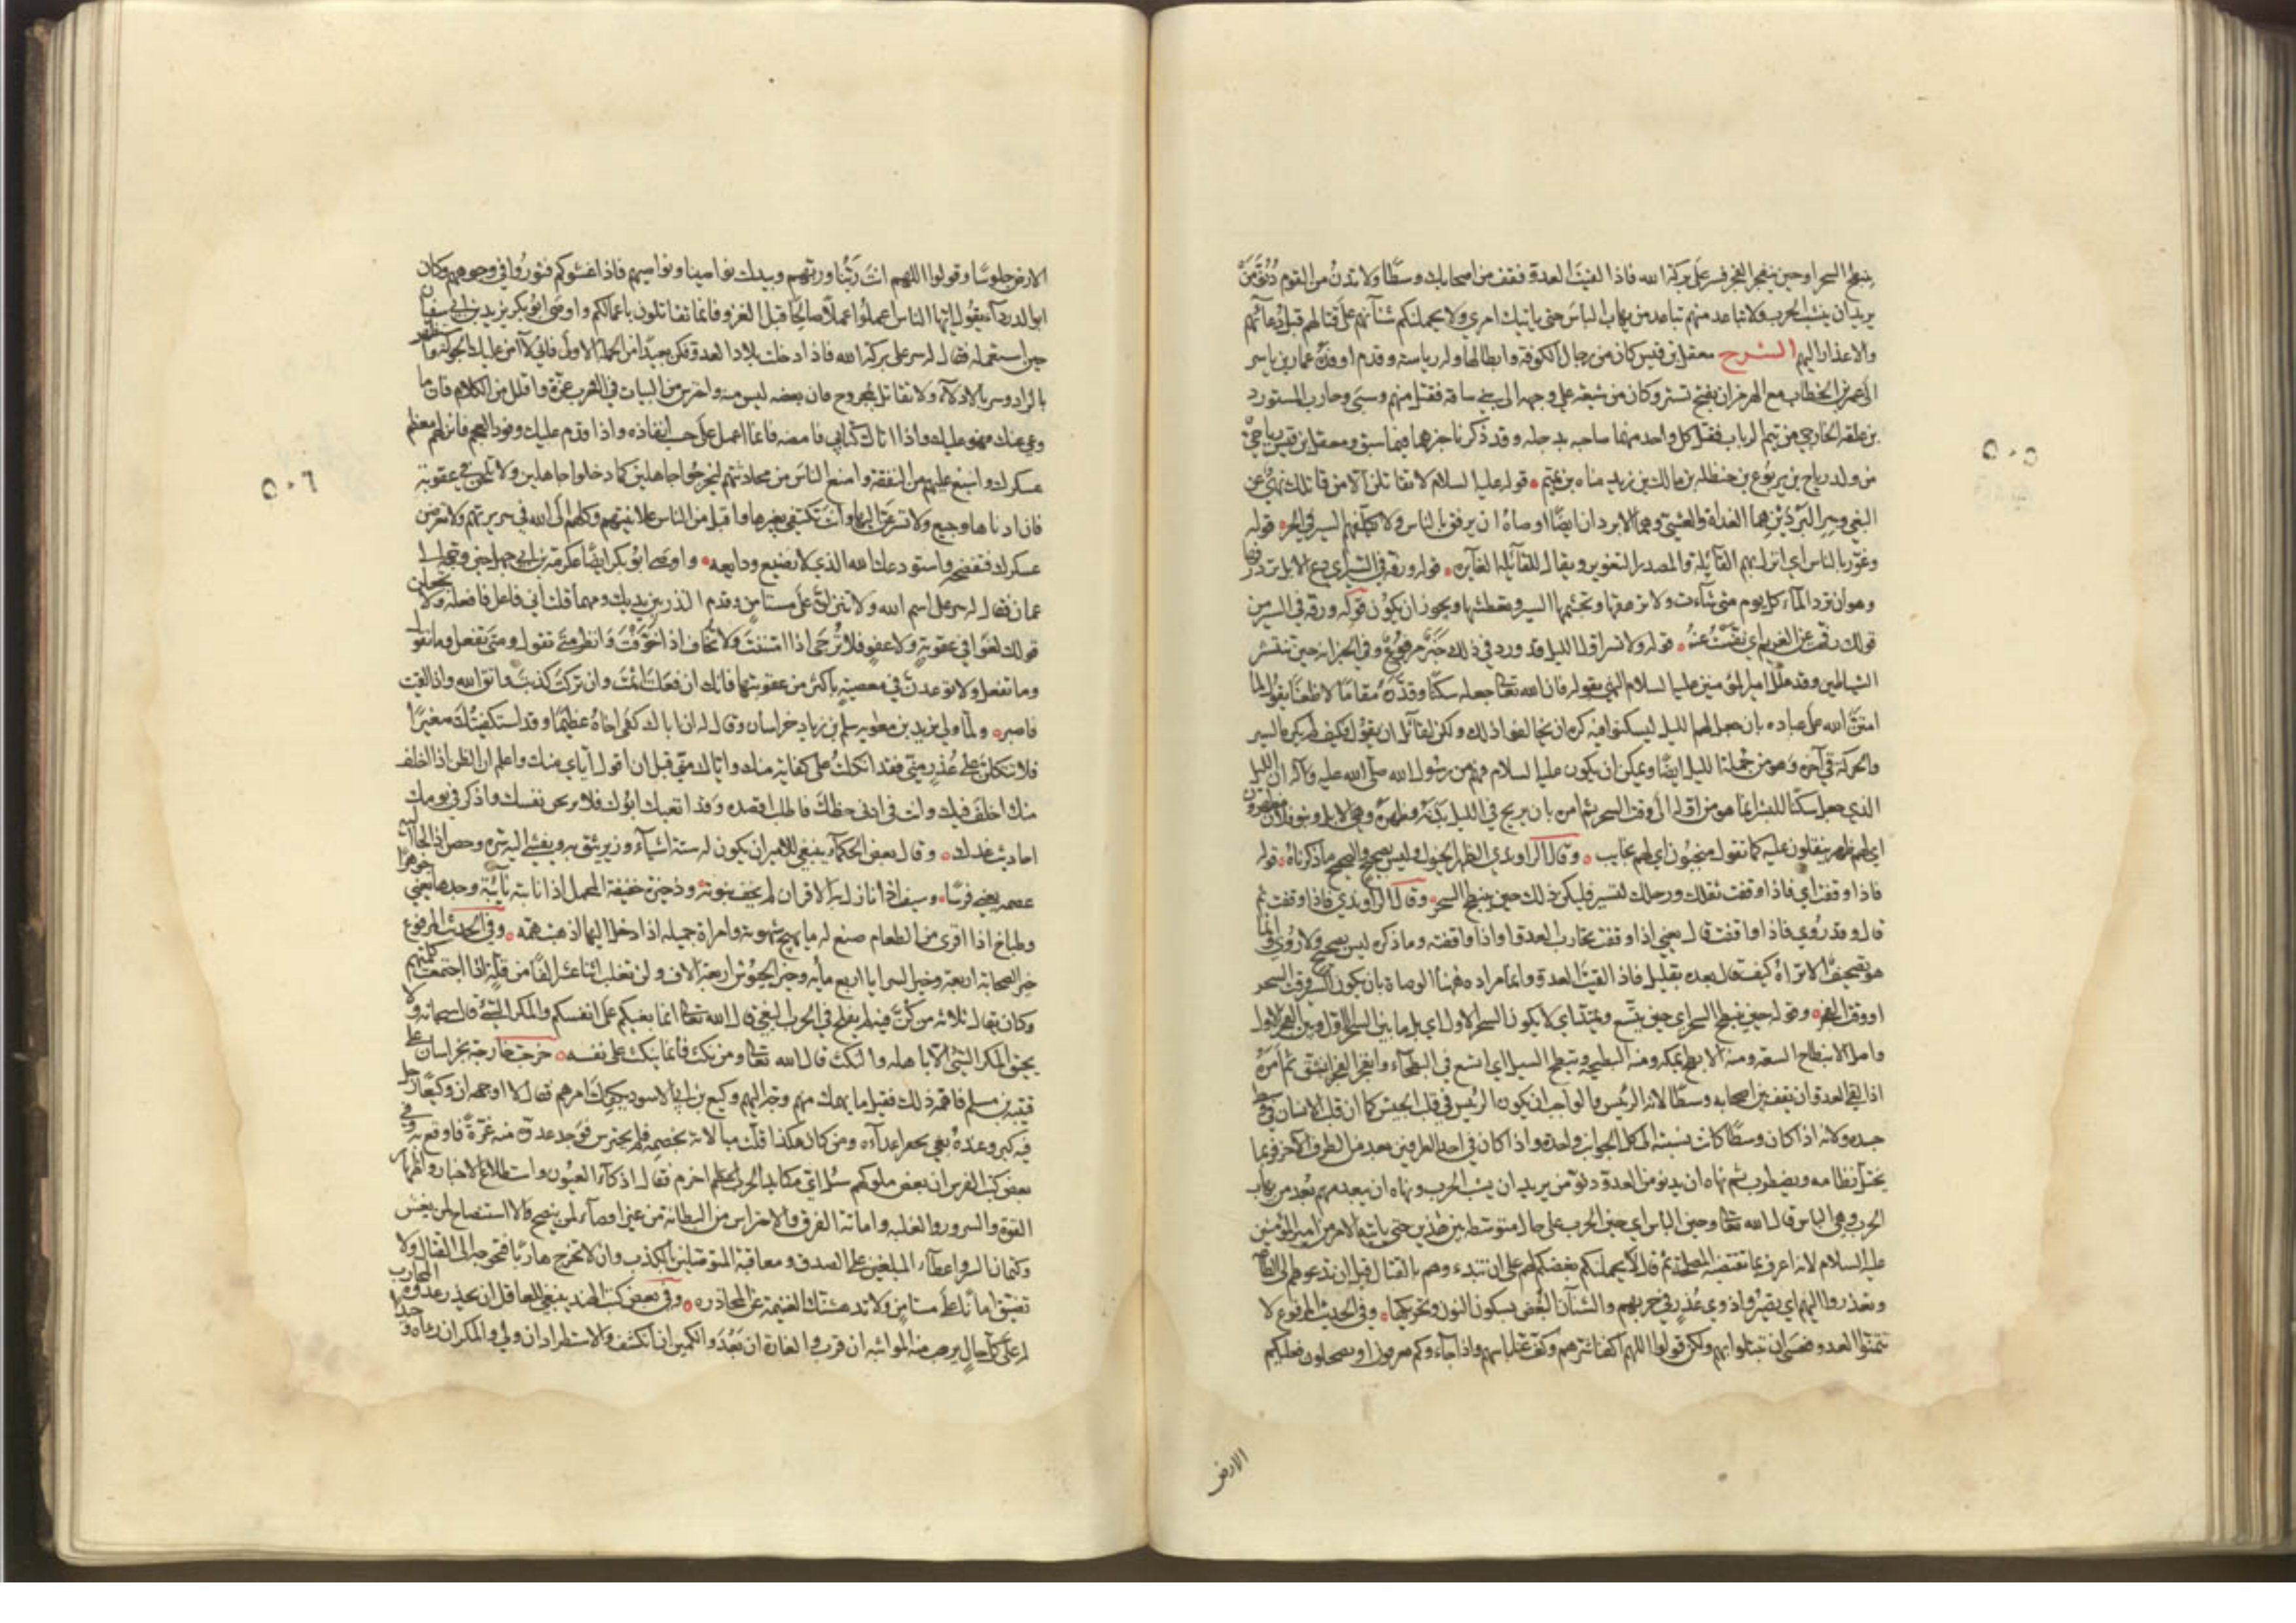 ينبطح السحر او حين ينفجر الفجر فسر على بركة الله فاذا لقيت العدو فقف من اصحابك وسطا ولا تدن من القوم دنو من
يريد ان ينشب الحرب ولا تباعد منهم تباعد من يهاب الباس حتى ياتيك امري ولا يحملنكم شنآنهم على قتالهم قبل دعائهم
والاعذار اليهم الشرح معقل بن قيس كان من رجال الكوفة وابطالها وله رياسة وقدم اوفده عمار بن ياسر
الى عمر بن الخطاب مع الهرمزان بفتح تستر وكان من شيعة علي وجهه الى بني ساقة فقتل منهم وسبى وحارب المستورد
بن علفة الخارجي من تيم الرباب فقتل كل واحد منهما صاحبه بدجلة وقد ذكرنا خبرهما فيما سبق ومعقل بن قيس رياحي
من ولد رياح بن يربوع بن حنظلة بن مالك بن زيد مناة بن تميم قوله عليه السلام لا تقاتلن الا من قاتلك نهي عن
البغي وسر البردين هما الغداة والعشي وهما الابردان ايضا اوصاه ان يرفق بالناس ولا يكلفهم السير في الحر قوله
وغور بالناس اي انزل بهم القائلة والمصدر التغوير ويقال للقائلة الغايرة قوله ورفه في السير اي دع الابل ترد رفها
وهو ان ترد الماء كل يوم متى شاءت ولا ترهقها وتجشمها السير ويجوز ان يكون قوله ورفه في السير من
قولك رفهت عن الغريم اي نفست عنه قوله ولا تسر اول الليل قد ورد في ذلك خبر مرفوع وفي الخبر انه حين تنتشر
الشياطين وقد علل امير المؤمنين عليه السلام النهي بقوله فان الله تعالى جعله سكنا وقدره مقاما لا ظعنا يقول لما
امتن الله على عباده بان جعل لهم الليل ليسكنوا فيه كره ان يخالفوا ذلك ولكن لقائل ان يقول فكيف لم يكره السير
والحركة في آخره وهو من جملة الليل ايضا ويمكن ان يكون عليه السلام فهم من رسول الله صلى الله عليه وآله ان الليل
الذي جعل سكنا للبشر انما هو من اوله الى وقت السحر ثم امره بان يريح في الليل بدنه وظهره وهي الابل وبنو فلان مظهرون
اي لهم ظهر ينقلون عليه كما تقول منجبون اي لهم نجايب وقال الراوندي الظهر الخيول وليس بصحيح والصحيح ما ذكرناه قوله
فاذا وقفت اي فاذا وقفت ثقلك ورحلك لتسير فليكن ذلك حين ينبطح السحر وقال الراوندي فاذا وقفت ثم
قال وقد روي فاذا واقفت قال يعني اذا وقفت تحارب العدو واذا واقفته وما ذكره ليس بصحيح ولا روي وانما
هو تصحيف الا تراه كيف قال بعده بقليل فاذا لقيت العدو وانما مراده ههنا الوصاة بان يكون السير وقت السحر
او وقت الفجر وقوله حين ينبطح السحر اي حين يتسع ويمتد اي لا يكون السحر الاول اي بل ما بين السحر الاول وبين الفجر الاول
واصل الانبطاح السعة ومنه الابطح بمكة ومنه البطيحة وتبطح السيل اي اتسع في البطحاء وانفجر الفجر انشق ثم امره
اذا لقي العدو ان يقف بين اصحابه وسطا لانه الرئيس والواجب ان يكون الرئيس في قلب الجيش كما ان قلب الانسان في وسط
جسده ولانه اذا كان وسطا كانت نسبته الى كل الجوانب واحدة واذا كان في احد الطرفين بعد من الطرف الآخر فربما
يختل نظامه ويضطرب ثم نهاه ان يدنو من العدو دنو من يريد ان ينشب الحرب ونهاه ان يبعد منهم بعد من يهاب
الحرب وهي الباس قال الله تعالى وحين الباس اي حين الحرب على حال متوسطة بين هذين حتى ياتيه الامر من امير المؤمنين
عليه السلام لانه اعرف بما تقتضيه المصلحة ثم قال لا يحملنكم بغضكم لهم على ان تبتدءوهم بالقتال قبل ان تدعوهم الى الطاعة
وتعذروا اليهم اي تصيروا ذوي عذر في حربهم والشنآن البغض بسكون النون وتحريكها وفي الحديث المرفوع لا
تتمنوا العدو فعسى ان تبتلوا بهم ولكن قولوا اللهم اكفنا شرهم وكف عنا باسهم واذا جاءوكم يصيحون فعليكم
الارض
٥٠٥
الارض جلوسا وقولوا اللهم انت ربنا وربهم وبيدك نواصينا ونواصيهم فاذا غشوكم فثوروا في وجوههم وكان
ابو الدرداء يقول ايها الناس اعملوا عملا صالحا قبل الغزو فانما تقاتلون باعمالكم واوصى ابو بكر يزيد بن ابي سفيان
حين استعمله فقال له سر على بركة الله فاذا دخلت بلاد العدو فكن بعيدا من الحملة الاولى فاني لا آمن عليك الجولة واستظهر
بالزاد وسر بالادلاء ولا تقاتل بمجروح فان بعضه ليس منه واحترس من البيات فان في العرب غرة واقلل من الكلام فان ما
وعي عنك فهو عليك واذا اتاك كتابي فامضه فانما اعمل على حسب انفاذه واذا قدم عليك وفود العجم فانزلهم معظم
عسكرك واسبغ عليهم من النفقة وامنع الناس من محادثتهم ليخرجوا جاهلين كما دخلوا جاهلين ولا تلحن في عقوبة
فان ادناها وجيع ولا تسرعن اليها وانت تكتفي بغيرها واقبل من الناس علانيتهم وكلهم الى الله في سريرتهم ولا تعرض
عسكرك فتفضحه واستودعك الله الذي لا تضيع ودايعه واوصى ابو بكر ايضا عكرمة بن ابي جهل حين وجهه الى
عمان فقال له سر على اسم الله ولا تنزلن على مستامن وقدم النذر بين يديك ومهما قلت اني فاعل فافعله ولا تجعلن
قولك لغوا في عقوبة ولا عفو فلا ترجى اذا امنت ولا تخاف اذا خوفت وانظر متى تقول ومتى تفعل وما تقول
وما تفعل ولا توعدن في معصية باكثر من عقوبتها فانك ان فعلت اثمت وان تركت كذبت واتق الله واذا لقيت
فاصبر ولما ولى يزيد بن معوية سلم بن زياد خراسان قال له ان اباك كفى اخاه عظيما وقد استكفيتك صغيرا
فلا تتكلن على عذر مني فقد اتكلت على كفاية منك واياك مني قبل ان اقول اياي منك واعلم ان الظن اذا اخلف
منك اخلف فيك وانت في ادنى حظك فاطلب اقصاه وقد اتعبك ابوك فلا تريحن نفسك واذكر في يومك
احاديث غدك وقال بعض الحكماء ينبغي للامير ان يكون له ستة اشياء وزير يثق به ويفشي اليه سره وحصن اذا لجأ اليه
عصمه يعني فرسا وسيف اذا نازل به الاقران لم يخف نبوته وذخيرة خفيفة المحمل اذا نابته نائبة وجدها يعني جوهرا
وطباخ اذا اقرى من الطعام صنع له ما يهيج شهوته وامراة جميلة اذا دخل اليها اذهبت همه وفي الحديث المرفوع
خير الصحابة اربعة وخير السرايا اربع مائة وخير الجيوش اربعة الاف ولن تغلب اثنا عشر الفا من قلة اذا اجتمعت كلمتهم
وكان يقال ثلاثة من كن فيه لم يفلح في الحرب البغي قال الله تعالى انما بغيكم على انفسكم والمكر السيئ قال سبحانه ولا
يحيق المكر السيئ الا باهله والنكث قال الله تعالى ومن نكث فانما ينكث على نفسه خرجت خارجة بخراسان على
قتيبة بن مسلم فاهمه ذلك فقيل ما يهمك منهم وجه اليهم وكيع بن ابي الاسود يكفيك امرهم فقال لا اوجهه ان وكيعا رجل
فيه كبر وعنده بغي يحقر اعداءه ومن كان هكذا قلت مبالاته بخصمه فلم يحترس فوجد عدوه منه غرة فاوقع به وفي
بعض كتب الفرس ان بعض ملوكهم سئل اي مكايد الحرب احزم فقال اذكاء العيون واستطلاع الاخبار واظهار
القوة والسرور والغلبة واماتة الفرق والاحتراس من البطانة من غير اقصاء لمن ينصح ولا استنصاح لمن يغش
وكتمان السر واعطاء المبلغين على الصدق ومعاقبة المتوصلين بالكذب وان لا تخرج هاربا فتحوجه الى القتال ولا
تضيق امانا على مستامن ولا تدهشنك الغنيمة عن المحاذرة وفي بعض كتب الهند ينبغي للعاقل ان يحذر عدوه المحارب
له على كل حال يرهب منه المواثبة ان قرب والغارة ان بعد والكمين ان انكشف والاستطراد ان ولى والمكر ان رآه وحيدا
٥٠٦